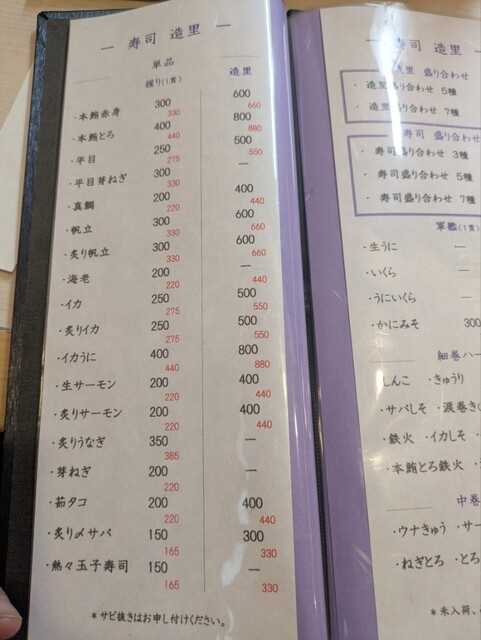 — 寿司 造里 —
単品
握り(1貫) 造里
・本鮪赤身 300 330 600 660
・本鮪とろ 400 440 800 880
・平目 250 275 500 550
・平目芽ねぎ 300 330 —
・真鯛 200 220 400 440
・帆立 300 330 600 660
・炙り帆立 300 330 600 660
・海老 200 220 —
・イカ 250 275 500 550
・炙りイカ 250 275 500 550
・イカうに 400 440 800 880
・生サーモン 200 220 400 440
・炙りサーモン 200 220 400 440
・炙りうなぎ 350 385 —
・芽ねぎ 200 220 —
・茹タコ 200 220 400 440
・炙り〆サバ 150 165 300 330
・熱々玉子寿司 150 165 — 330
*サビ抜きはお申し付けください。
— 寿司 造里 —
造里 盛り合わせ
・造里盛り合わせ 5種
・造里盛り合わせ 7種
寿司 盛り合わせ
・寿司盛り合わせ 3種
・寿司盛り合わせ 5種
・寿司盛り合わせ 7種
軍艦(1貫)
・生うに —
・いくら —
・うにいくら —
・かにみそ 300
細巻ハー
しんこ ・きゅうり
・サバしそ ・涙巻き
・鉄火 ・イカしそ
・本鮪とろ鉄火
中巻
・ウナきゅう ・サー
・ねぎとろ ・とろ
*未入荷、